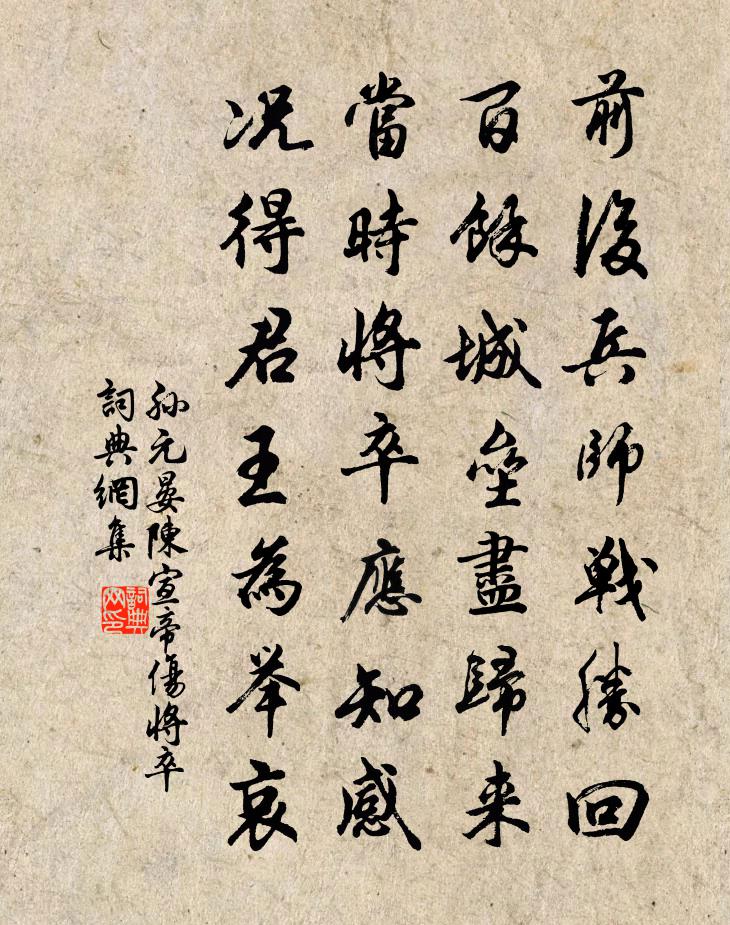 前後兵師戰勝回
百餘城壘盡歸来
當時將卒應知感
况得君王為举哀
孙元晏陳宣帝傷將卒
詞典網集
詞典
网印